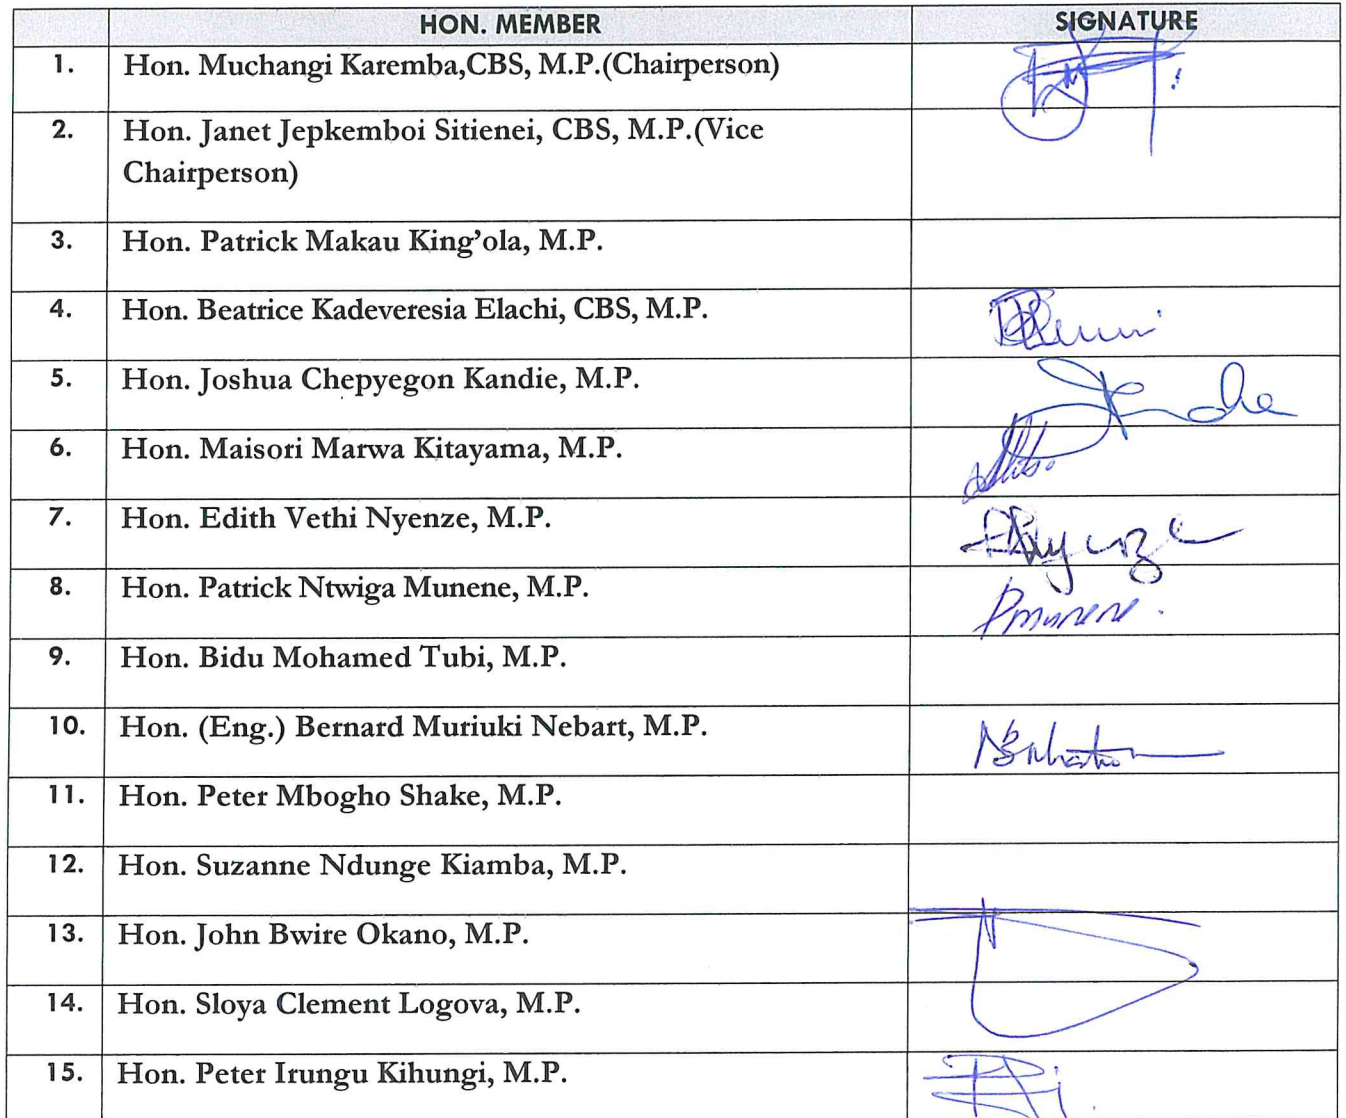 HON. MEMBER SIGNATURE
1. Hon. Muchangi Karemba,CBS, M.P.(Chairperson)
2. Hon. Janet Jepkemboi Sitienei, CBS, M.P.(Vice
Chairperson)
3. Hon. Patrick Makau King’ola, M.P.
4. Hon. Beatrice Kadeveresia Elachi, CBS, M.P.
5. Hon. Joshua Chepyegon Kandie, M.P.
6. Hon. Maisori Marwa Kitayama, M.P.
7. Hon. Edith Vethi Nyenze, M.P.
8. Hon. Patrick Ntwiga Munene, M.P. Pmunene.
9. Hon. Bidu Mohamed Tubi, M.P.
10. Hon. (Eng.) Bernard Muriuki Nebart, M.P.
11. Hon. Peter Mbogho Shake, M.P.
12. Hon. Suzanne Ndunge Kiamba, M.P.
13. Hon. John Bwire Okano, M.P.
14. Hon. Sloya Clement Logova, M.P.
15. Hon. Peter Irungu Kihungi, M.P.